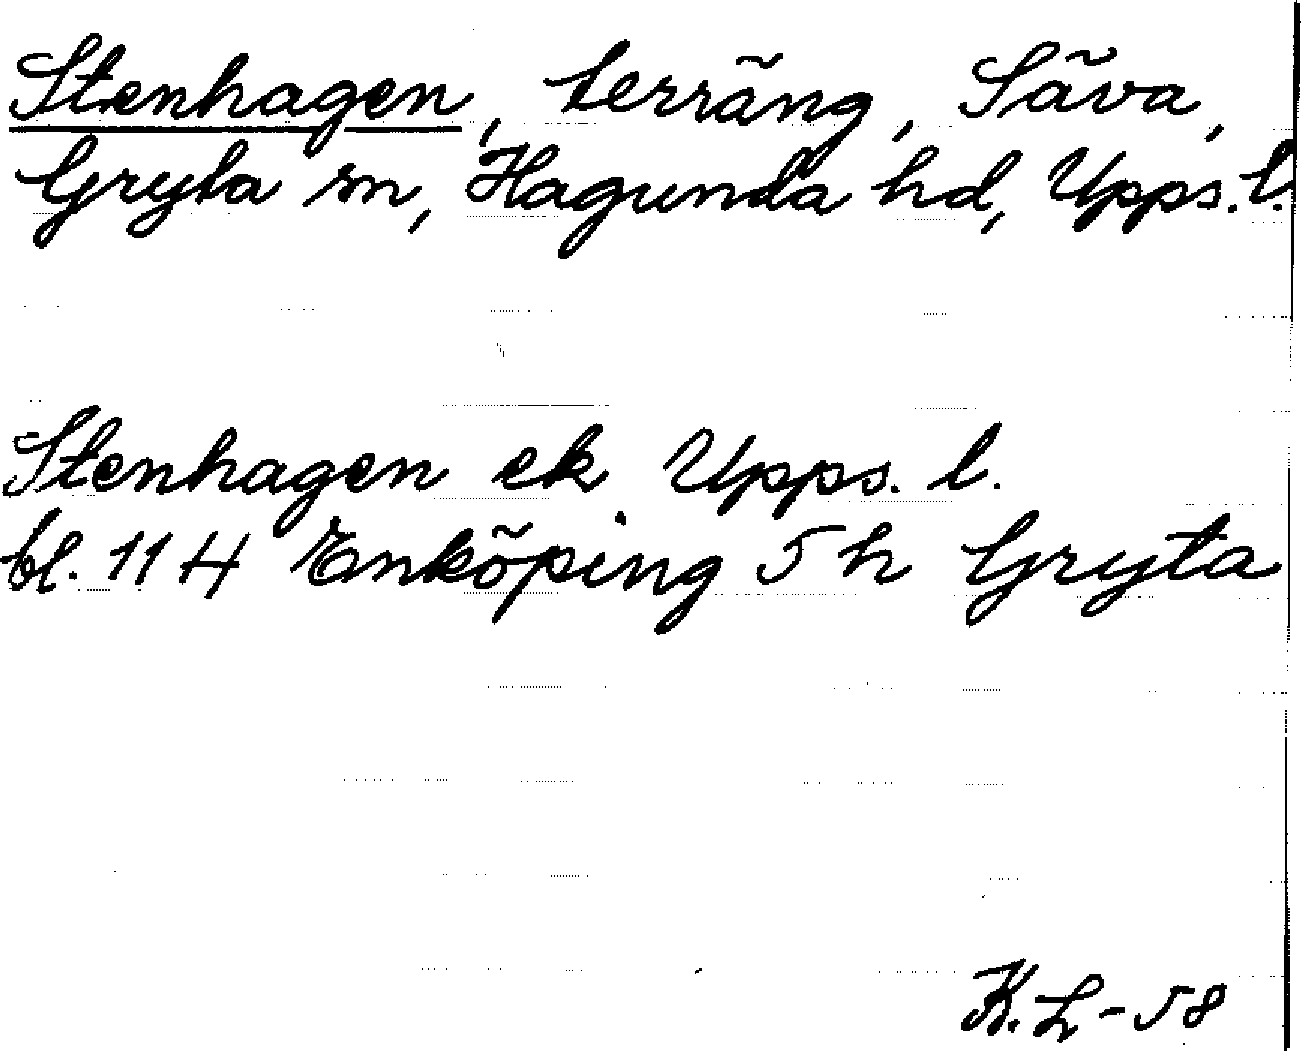 Stenhagen, terräng, Säva,
Gryta sn, Hagunda hd, Upps. l.
Stenhagen ek. Upps. l.
bl. 11 H Enköping 5 h Gryta
K. L-58